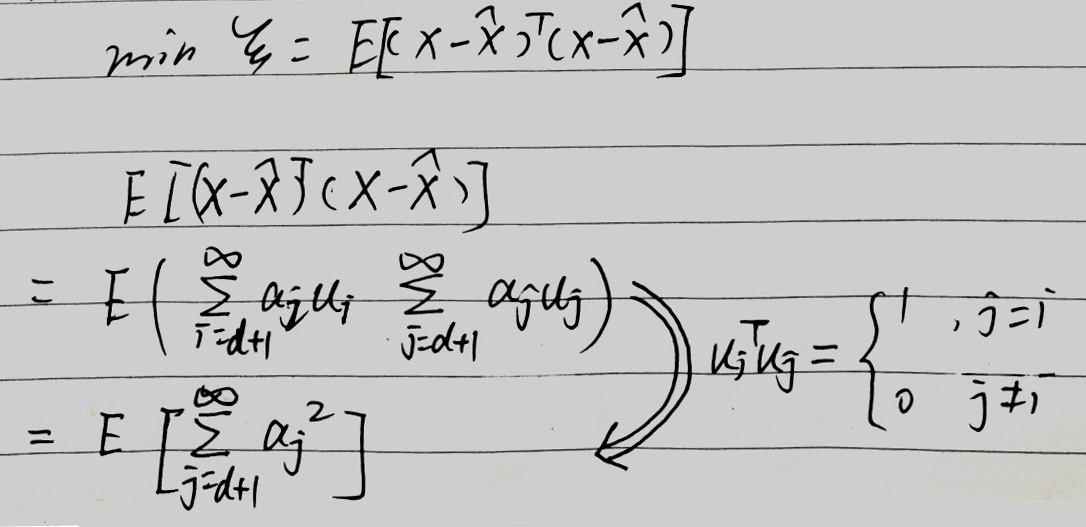 min ξ = E[(x-x̂)ᵀ(x-x̂)]
E[(x-x̂)ᵀ(x-x̂)]
= E(∑_{i=d+1}^{∞} α_j u_i ∑_{j=d+1}^{∞} α_j u_j)
u_jᵀu_j = { 1 , j=i
0 j≠i
= E[∑_{j=d+1}^{∞} α_j²]